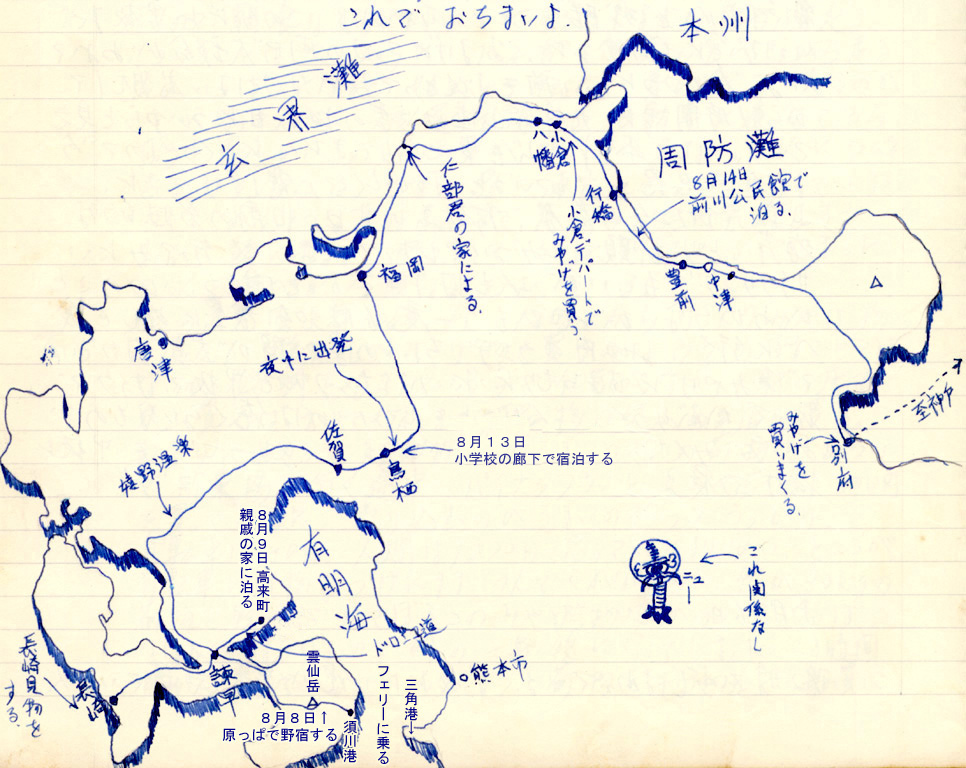 これで おちまいよ.
本州
玄界灘
周防灘
8月14日
前川公民館で
泊る.
八幡
小倉
行橋
仁部君の家による.
小倉デパートで
みやげを買う.
豊前
中津
福岡
唐津
夜中に出発
佐賀
鳥栖
8月13日
小学校の廊下で宿泊する
嬉野温泉
至神戸
別府
みやげを
買いまくる.
これ関係なし
ニュー
8月9日、高来町
親戚の家に泊る
有明海
ドロ海道
熊本市
長崎見物を
する.
長崎
諫早
雲仙岳
8月8日↑
原っぱで野宿する
須川港
フェリーに乗る
三角港↓